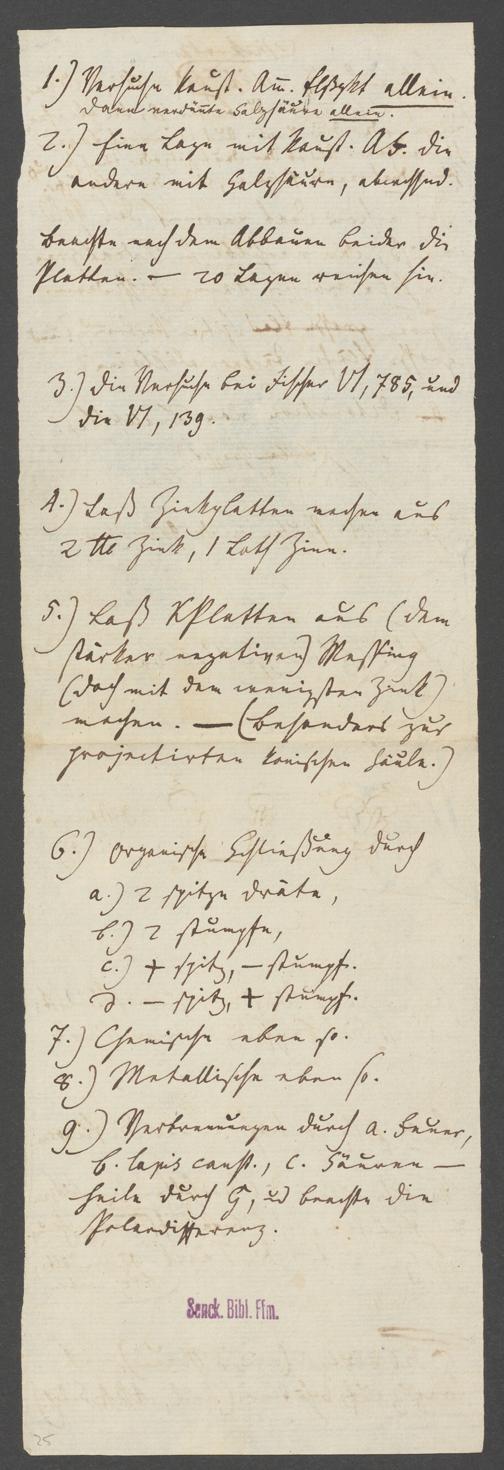 1.) Versuche kaust. Am. flßgkt allein.
dann verdünte Salzsäure allein.
2.) Eine Lage mit kaust. Ab. die
andere mit Salzsäure, abwechsd.
Beachte nach dem Abbauen beider die
Platten. — 20 Lagen reichen hin.
3.) die Versuche bei Fischer VI, 785, und
die VI, 139.
4.) Laß Zinkplatten machen aus
2 ℔ Zink, 1 Loth Zinn.
5.) Laß KPlatten aus (dem
stärker negativen) Messing
(doch mit dem wenigsten Zink)
machen. — (Besonders zur
projectirten konischen Säule.)
6.) organische Schließung durch
a.) 2 spitze dräte,
b.) 2 stumpfe,
c.) + spitz, — stumpf.
d. — spitz, + stumpf.
7.) Chemische eben so.
8.) Metallische eben so.
9.) Verbrennungen durch a. Feuer,
b. lapis caust., c. Säuren —
heile durch G, ud beachte die
Polardifferenz.
Senck. Bibl. Ffm.
25